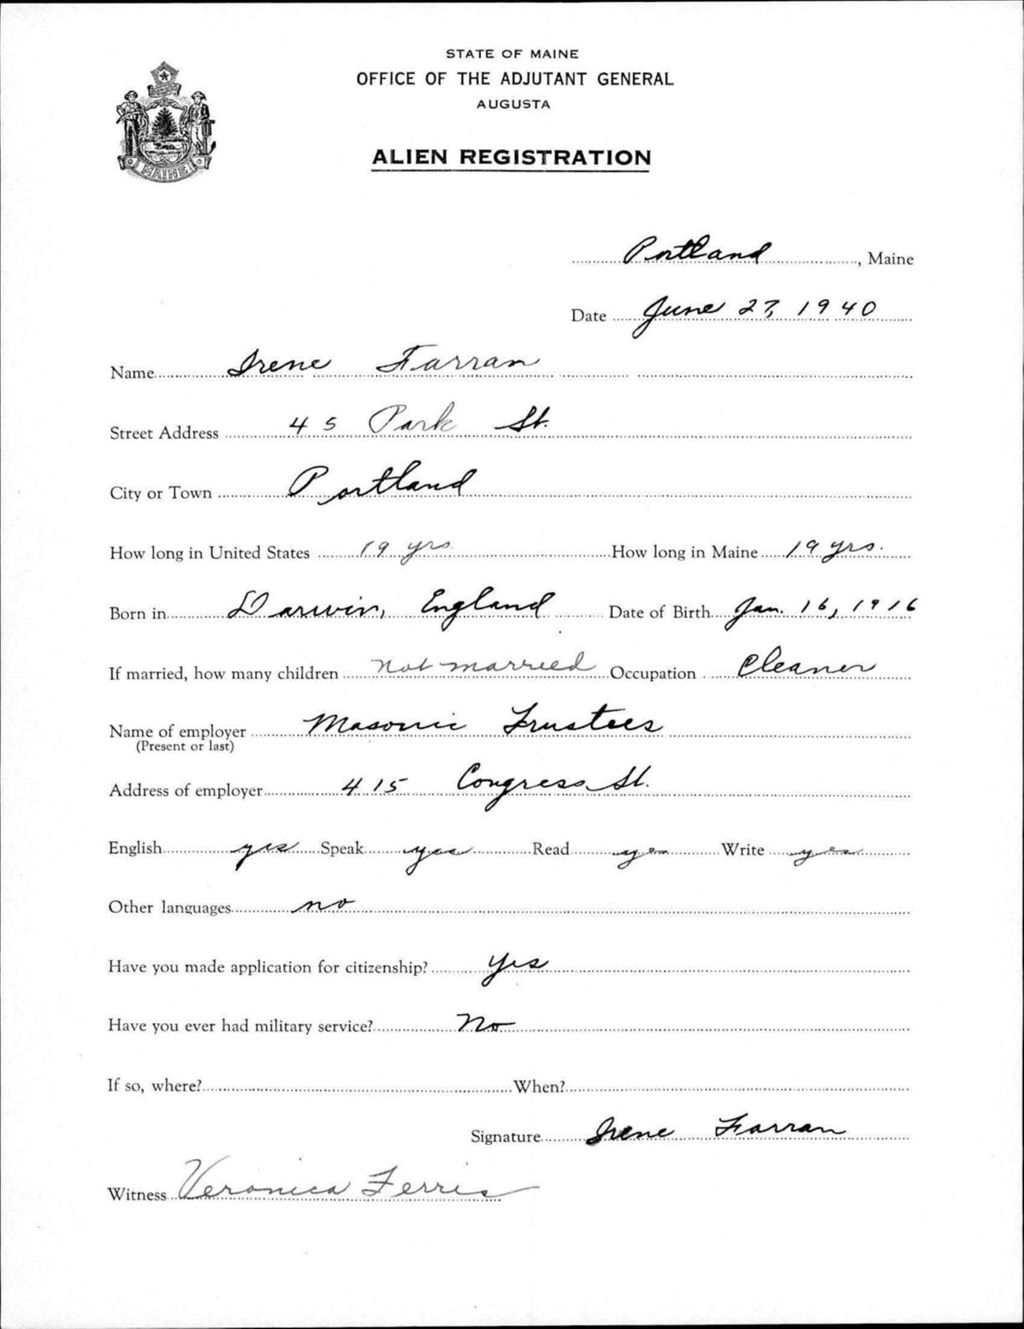 STATE OF MAINE
OFFICE OF THE ADJUTANT GENERAL
AUGUSTA
ALIEN REGISTRATION
MAINE
Portland, Maine
Date June 27, 1940
Name Irene Farran
Street Address 45 Park St.
City or Town Portland
How long in United States 19 yrs How long in Maine 19 yrs.
Born in Darwin, England Date of Birth Jan. 16, 1916
If married, how many children not married Occupation Cleaner
Name of employer Masonic Trustees
(Present or last)
Address of employer 415 Congress St.
English yes Speak yes Read yes Write yes
Other languages no
Have you made application for citizenship? Yes
Have you ever had military service? No
If so, where? When?
Signature Irene Farran
Witness Veronica Ferris